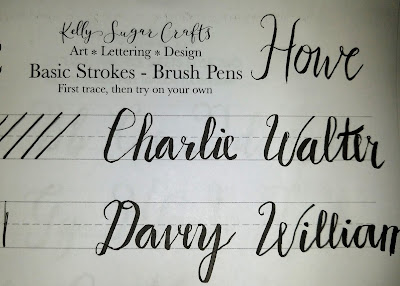 Kelly Sugar Crafts
Art * Lettering * Design
Basic Strokes - Brush Pens
First trace, then try on your own
Howe
Charlie Walter
Davey William